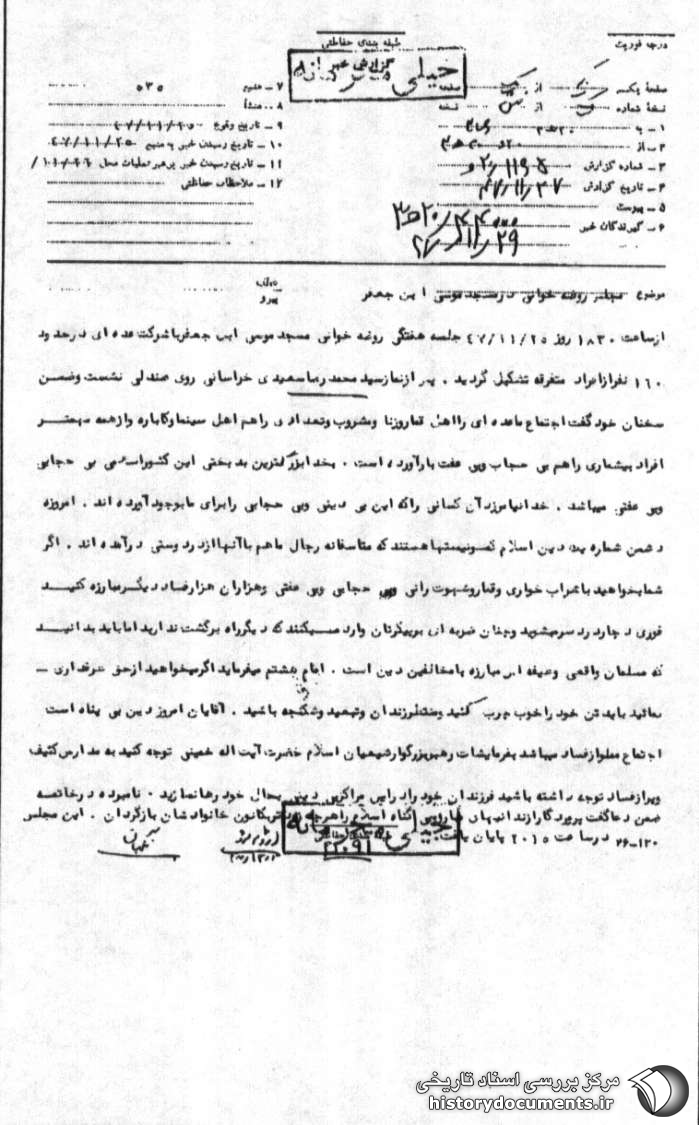 درجه فوریت
طبقه بندی حفاظتی
گزارش خبر
خیلی محرمانه
صفحه یکم از صفحه
نسخه شماره از نسخه
۱ – به
۲ – از
۳ – شماره گزارش
۴ – تاریخ گزارش ۴۷/۱۱/۲۷
۵ – پیوست
۶ – گیرندگان خبر
۷ – منبع ۵۳۵
۸ – منشأ
۹ – تاریخ وقوع ۴۷/۱۱/۲۵
۱۰ – تاریخ رسیدن خبر به منبع ۴۷/۱۱/۲۵
۱۱ – تاریخ رسیدن خبر برهبر عملیات محل
۱۲ – ملاحظات حفاظتی
موضوع مجلس روضه خوانی در مسجد موسی ابن جعفر
پیرو
ازساعت ۱۸۳۰ روز ۴۷/۱۱/۲۵ جلسه هفتگی روضه خوانی مسجد موسی ابن جعفر باشرکت عده ای درحدود
۱۶۰ نفرازافراد متفرقه تشکیل گردید . پس ازنمازسید محمد رضا سعیدی خراسانی روی صندلی نشست وضمن
سخنان خود گفت اجتماع ماعده ای رااهل قماروزنا ومشروب وتعدادی راهم اهل سینماوکاباره وازهمه مهمتر
افراد بیشماری راهم بی حجاب وبی عفت بارآورده است . بخدا بزرگترین بدبختی این کشوراسلامی بی حجابی
وبی عفتی میباشد . خدانیامرزد آن کسانی راکه این بی دینی وبی حجابی رابرای مابوجود آورده اند . امروزه
دشمن شماره یک دین اسلام کمونیستها هستند که متاسفانه رجال ماهم باآنهاازدر دوستی درآمده اند . اگر
شمابخواهید باشراب خواری وقماروشهوت رانی وبی حجابی وبی عفتی وهزاران هزارفساد دیگرمبارزه کنید
فوری دچاردردسرمیشوید وچنان ضربه ای برپیکرتان وارد میکنند که دیگرراه برگشت ندارید اماباید بدانید
که مسلمان واقعی وظیفه اش مبارزه بامخالفین دین است . امام هشتم میفرماید اگرمیخواهید ازحق طرفداری –
نمائید باید تن خود راخوب چرب کنید ومنتظرزندان وتبعید وشکنجه باشید . آقایان امروز دین بی پناه است
اجتماع مملوازفساد میباشد بفرمایشات رهبربزرگوارشیعیان اسلام حضرت آیت اله خمینی توجه کنید به مدارس کثیف
وپرازفساد توجه داشته باشید فرزندان خود رادراین مراکز بحال خود رها نمازید . نامبرده درخاتمه
ضمن دعاگفت پروردگارازندانیهای اسلام راهرچه زودتربکانون خانوادشان بازگردان . این مجلس
درساعت ۲۰۱۵ پایان یافت . ۱۲۰–۲۶
خیلی محرمانه
مرکز بررسی اسناد تاریخی
historydocuments.ir